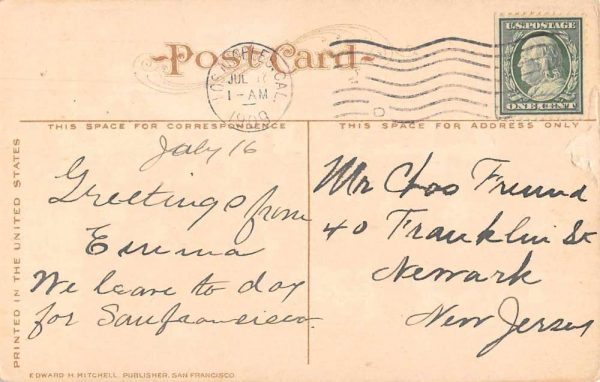 Post Card
U.S. POSTAGE
ONE CENT
LOS ANGELES, CAL.
JUL 17
1-AM
1909
THIS SPACE FOR CORRESPONDENCE
THIS SPACE FOR ADDRESS ONLY
July 16
Greetings from
Emma
We leave to day
for San francisico.
Mr Chas Freund
40 Franklin St
Newark
New Jersey
PRINTED IN THE UNITED STATES
EDWARD H. MITCHELL, PUBLISHER, SAN FRANCISCO.